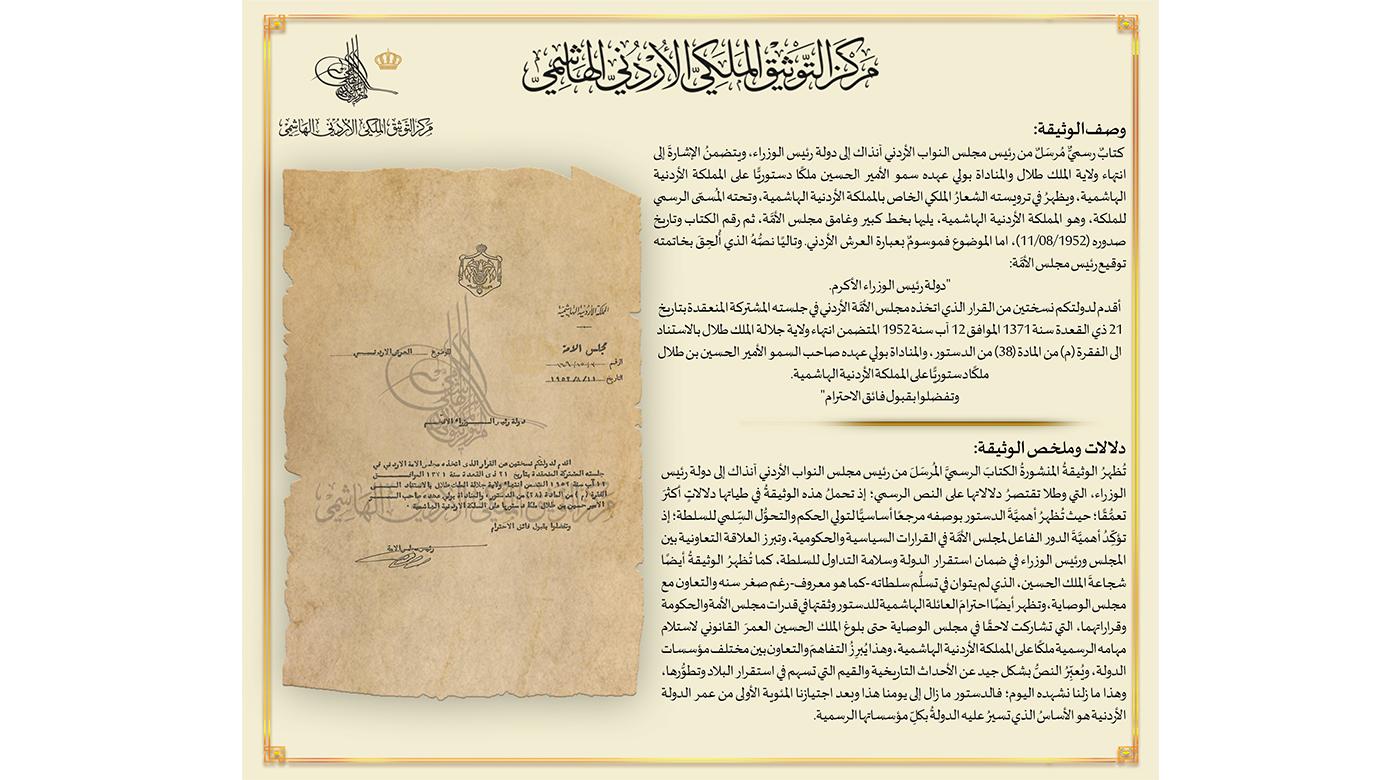 مَركَزُ التَّوثيقِ المَلَكيِّ الأُردُنيِّ الهاشِميِّ
مركز التوثيق الملكي الأردني الهاشمي
وصف الوثيقة:
كتابٌ رسميٌّ مُرسَلٌ من رئيس مجلس النواب الأردني آنذاك إلى دولة رئيس الوزراء، ويتضمنُ الإشارةَ إلى
انتهاء ولاية الملك طلال والمناداة بولي عهده سمو الأمير الحسين ملكًا دستوريًّا على المملكة الأردنية
الهاشمية، ويظهرُ في ترويسته الشعارُ الملكي الخاص بالمملكة الأردنية الهاشمية، وتحته المُسمّى الرسمي
للملكة، وهو المملكة الأردنية الهاشمية، يليها بخط كبير وغامق مجلس الأمَّة، ثم رقم الكتاب وتاريخ
صدوره (11/08/1952)، اما الموضوع فموسومٌ بعبارة العرش الأردني. وتاليًا نصُّهُ الذي أُلحِقَ بخاتمته
توقيع رئيس مجلس الأمَّة:
"دولة رئيس الوزراء الأكرم.
أقدم لدولتكم نسختين من القرار الذي اتخذه مجلس الأمَّة الأردني في جلسته المشتركة المنعقدة بتاريخ
21 ذي القعدة سنة 1371 الموافق 12 آب سنة 1952 المتضمن انتهاء ولاية جلالة الملك طلال بالاستناد
الى الفقرة (م) من المادة (38) من الدستور، والمناداة بولي عهده صاحب السمو الأمير الحسين بن طلال
ملكًا دستوريًّا على المملكة الأردنية الهاشمية.
وتفضلوا بقبول فائق الاحترام"
دلالات وملخص الوثيقة:
تُظهرُ الوثيقةُ المنشورةُ الكتابَ الرسميَّ المُرسَلَ من رئيس مجلس النواب الأردني آنذاك إلى دولة رئيس
الوزراء، التي وطلا تقتصرُ دلالاتها على النص الرسمي؛ إذ تحملُ هذه الوثيقةُ في طياتها دلالاتٍ أكثرَ
تعمُّقًا؛ حيث تُظهرُ أهميَّةَ الدستور بوصفه مرجعًا أساسيًّا لتولي الحكم والتحوُّل السِّلمي للسلطة؛ إذ
تؤكِّدُ أهميَّةَ الدور الفاعل لمجلس الأمَّة في القرارات السياسية والحكومية، وتبرز العلاقة التعاونية بين
المجلس ورئيس الوزراء في ضمان استقرار الدولة وسلامة التداول للسلطة، كما تُظهرُ الوثيقةُ أيضًا
شجاعةَ الملك الحسين، الذي لم يتوان في تسلُّم سلطاته -كما هو معروف- رغم صغر سنه والتعاون مع
مجلس الوصاية، وتظهر أيضًا احترامَ العائلة الهاشمية للدستور وثقتها في قدرات مجلس الأمة والحكومة
وقراراتهما، التي تشاركت لاحقًا في مجلس الوصاية حتى بلوغ الملك الحسين العمرَ القانوني لاستلام
مهامه الرسمية ملكًا على المملكة الأردنية الهاشمية، وهذا يُبرِزُ التفاهمَ والتعاون بين مختلف مؤسسات
الدولة، ويُعبِّرُ النصُّ بشكل جيد عن الأحداث التاريخية والقيم التي تسهم في استقرار البلاد وتطوُّرها،
وهذا ما زلنا نشهده اليوم؛ فالدستور ما زال إلى يومنا هذا وبعد اجتيازنا المئوية الأولى من عمر الدولة
الأردنية هو الأساسُ الذي تسيرُ عليه الدولةُ بكلِّ مؤسساتها الرسمية.
المملكة الأردنية الهاشمية
مجلس الامة
الرقم
التاريخ ١٩٥٢/٨/١١
الموضوع العرش الاردنــي
دولة رئيس الــوزراء الافخم
اقدم لدولتكم نسختين من القرار الذي اتخذه مجلس الامة الاردني في
جلسته المشتركة المنعقدة بتاريخ ٢١ ذي القعدة سنة ١٣٧١ الموافــق
آب سنة ١٩٥٢ المتضمن انتهاء ولاية جلالة الملك طلال بالاستناد الــى
الفقرة (م) من المادة (٣٨) من الدستور، والمناداة بولي عهده صاحب الســمو
الامير حسين بن طلال ملكا دستوريا على المملكة الاردنية الهاشمية ٠
وتفضلوا بقبول فائق الاحترام
رئيس مجلس الامة
مركز التوثيق الملكي الأردني الهاشمي